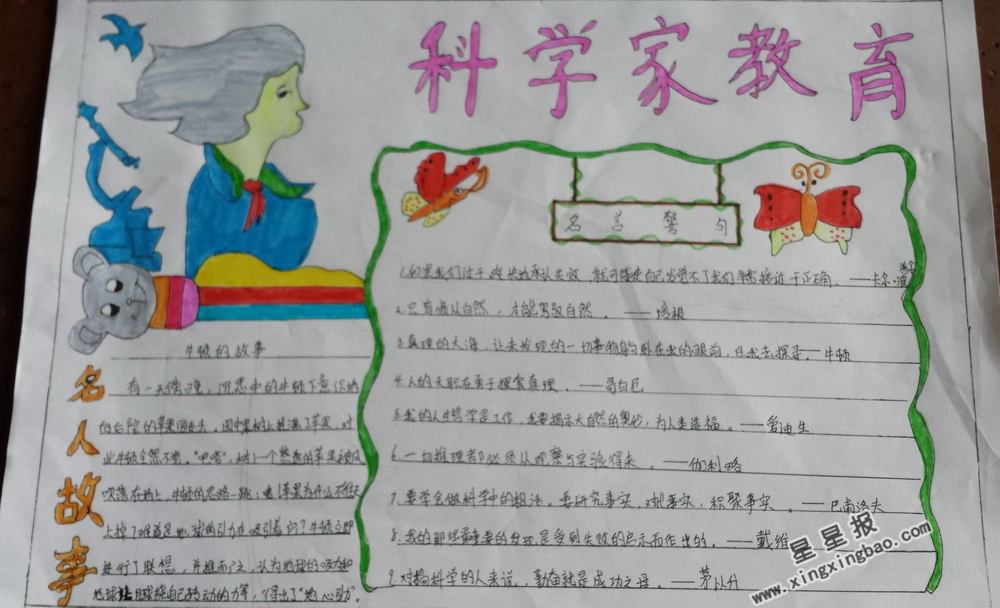 科学家教育
名言警句
1.如果我们过于爽快地承认失败，就可能使自己发觉不了我们非常接近于正确。——卡尔·波普尔
2.只有顺从自然，才能驾驭自然。——培根
3.真理的大海，让未发现的一切事物躺卧在我的眼前，任我去探寻。-牛顿
4.人的天职在勇于探索真理。——哥白尼
5.我的人生哲学是工作，我要揭示大自然的奥妙，为人类造福。——爱迪生
6.一切推理都必须从观察与实验得来。——伽利略
7.要学会做科学中的粗活。要研究事实，对比事实，积聚事实。——巴甫洛夫
8.我的那些最重要的发现是受到失败的启示而作出的。——戴维
9.对搞科学的人来说，勤奋就是成功之母。——茅以升
名人故事
牛顿的故事
有一天傍晚，沉思中的牛顿下意识地
向后院的苹果园走去，园中果树上挂满了苹果，对
此牛顿全然不觉。"吧嗒"，树上一个熟透的苹果被风
吹落在地上，牛顿的思路一跳：苹果为什么不往天
上掉？难道是地球的引力在吸引着它？牛顿立即
进行了联想，并推而广之，认为地球的吸力和
地球自己转动的力等，得出了"地心引力"。
星星报
www.xingxingbao.com